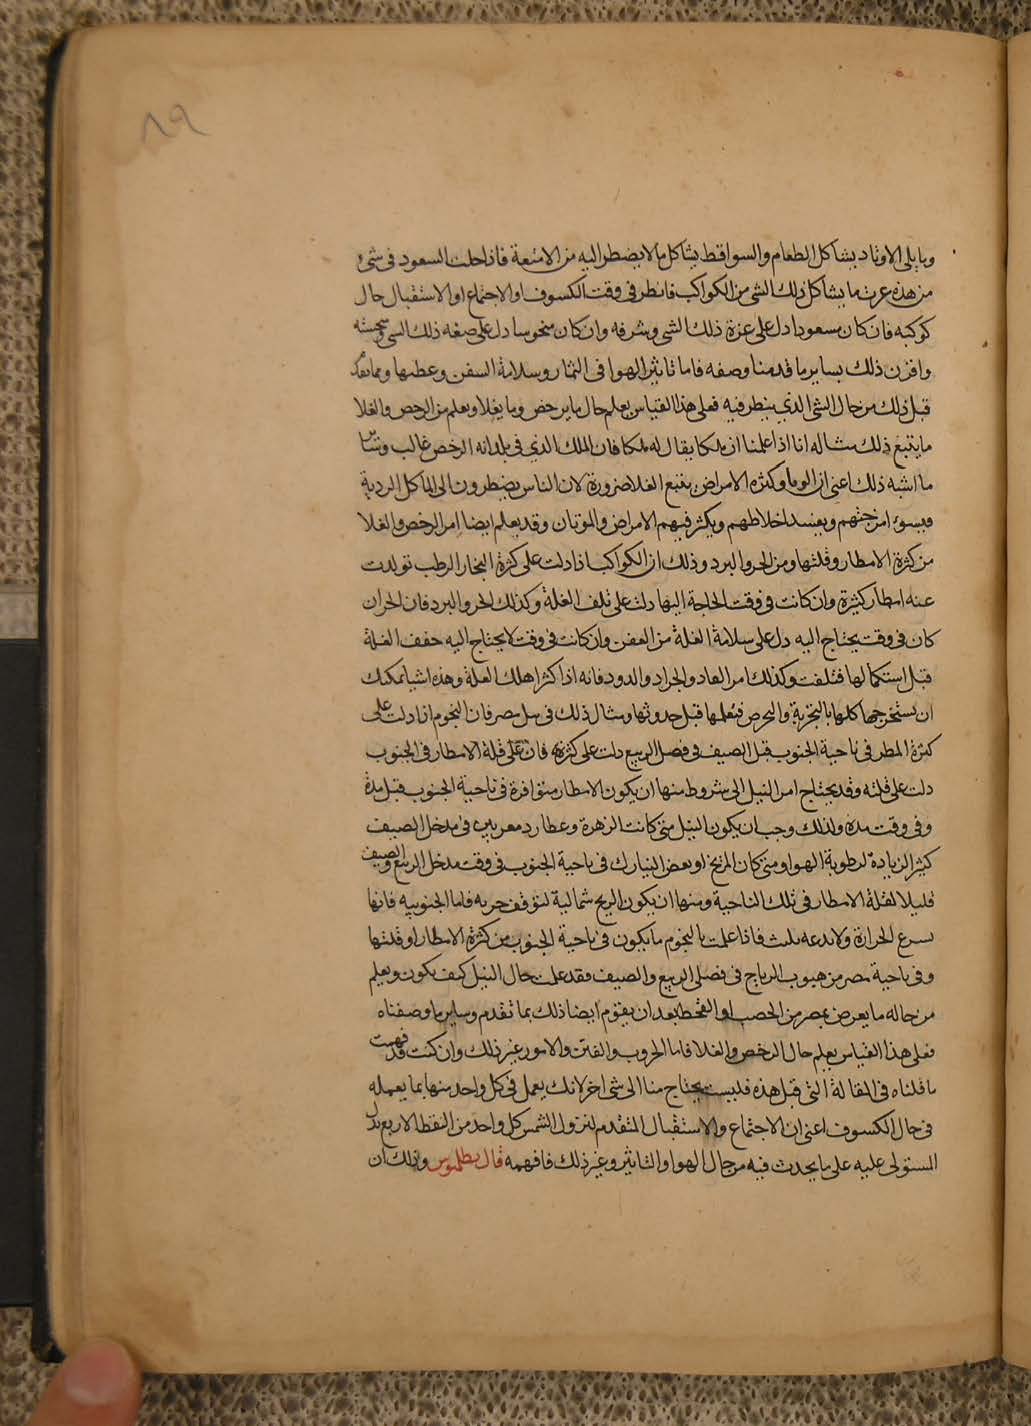 ٨٩
وما يلى الاوتاد يشاكل الطعام والسواقط يشاكل ما لا يضطر اليه من الامتعة فاذا حلت السعود فى شئ
من هذه عرف ما يشاكل ذلك الشى من الكواكب فانظر فى وقت الكسوف او الاجتماع او الاستقبال حال
كوكبه فان كان مسعودا دل على عزة ذلك الشى وشرفه وان كان منحوسا دل على صفه ذلك الشى وخسته
واقرن ذلك بساير ما قدمنا وصفه فاما تاثير الهوا فى الثمار وسلامة السفن وعطبها ومما تقدم
قبل ذلك من حال الشئ الذى ينظر فيه فعلى هذا القياس يعلم حال ما يرخص وما يغلا ويعلم من الرخص والغلا
ما يتبع ذلك مثاله انا اذا علمنا ان ملكا يقال له ملكا فان الملك الذى فى بلدانه الرخص غالب وساير
ما اشبه ذلك اعنى ان الوبا وكثره الامراض يتبع الغلا ضرورة لان الناس يضطرون الى الماكل الردية
فيسوء امزجتهم ويفسد اخلاطهم ويكثر فيهم الامراض والموتان وقد يعلم ايضا امر الرخص والغلا
من كثرة الامطار وقلتها ومن الحر والبرد وذلك ان الكواكب اذا دلت على كثرة البخار الرطب تولدت
عنه امطار كثيرة وان كانت فى وقت الحاجة اليها دلت على تلف الغلة وكذلك الحر والبرد فان الحر ان
كان فى وقت يحتاج اليه دل على سلامة الغلة من العفن وان كانت فى وقت لا يحتاج اليه جفف الغلة
قبل استكمالها فتلفت وكذلك امر الفار والجراد والدود فانه اذا كثر اهلك الغلة وهذه اشيا يمكنك
ان يستخرجها كلها بالتجربة والحرص فتعلمها قبل حدوثها ومثال ذلك فى نيل مصر فان النجوم اذا دلت على
كثرة المطر فى ناحية الجنوب قبل الصيف فى فصل الربيع دلت على كثرته فان دلت على قلة الامطار فى الجنوب
دلت على قلته وقد يحتاج امر النيل الى شروط منها ان يكون الامطار متوافرة فى ناحية الجنوب قبل مدة
وفى وقت مده ولذلك وجب ان يكون النيل متى كانت الزهرة وعطارد مغربين فى مدخل الصيف
كثير الزيادة لرطوبة الهوا ومتى كان المريخ او بعض النيازك فى ناحية الجنوب فى وقت مدخل الربيع والصيف
قليلا لقلة الامطار فى تلك الناحية ومنها ان يكون الريح شمالية لتوقف جريه فاما الجنوبيه فانها
يسرع الحرارة ولا تدعه يلبث فاذا علمت بالنجوم ما يكون فى ناحية الجنوب من كثرة الامطار او قلتها
وفى ناحية مصر من هبوب الرياح فى فصلى الربيع والصيف فقد علمت حال النيل كيف يكون ويعلم
من حاله ما يعرض بمصر من الخصب او القحط بعد ان يقوم ايضا ذلك بما تقدم وساير ما وصفناه
فعلى هذا القياس يعلم حال الرخص والغلا فاما الحروب والفتن والامور غير ذلك وان كنت قد فهمت
ما قلناه فى المقالة التى قبل هذه فليست يحتاج منا الى شى اخر لانك يعمل فى كل واحد منها بما يعمله
فى حال الكسوف اعنى ان الاجتماع والاستقبال المتقدم لنزول الشمس كل واحد من النقط الاربع يدل
المستولى عليه على ما يحدث فيه من حال الهوا والتاثير وغير ذلك فافهمه قال بطلميوس وذلك ان